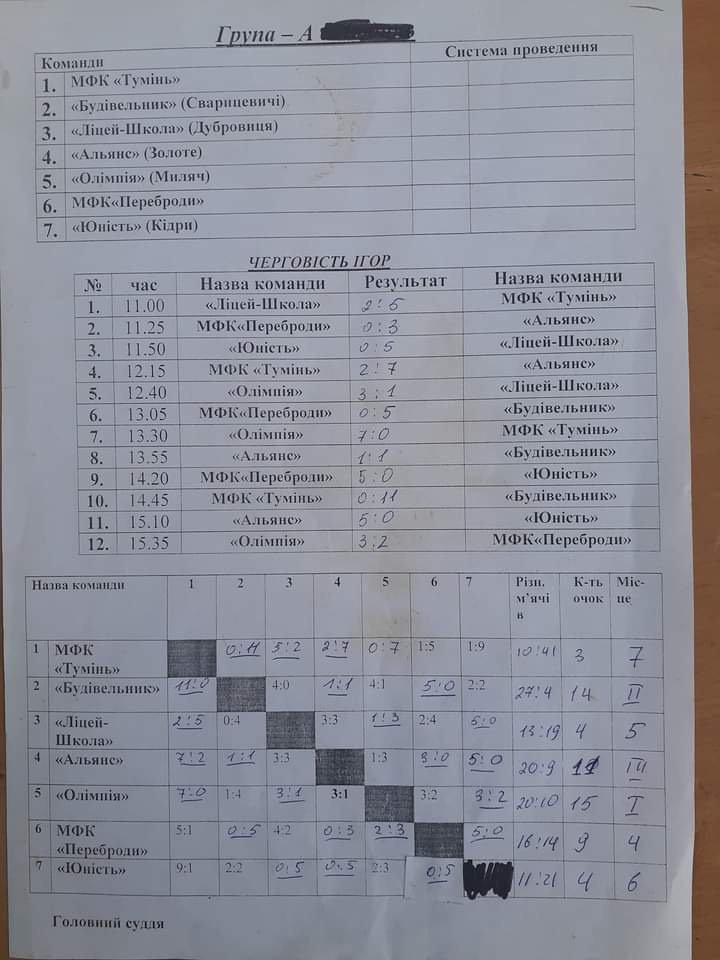 Група – А
Команди Система проведення
1. МФК «Тумінь»
2. «Будівельник» (Сварицевичі)
3. «Ліцей-Школа» (Дубровиця)
4. «Альянс» (Золоте)
5. «Олімпія» (Миляч)
6. МФК«Переброди»
7. «Юність» (Кідри)
ЧЕРГОВІСТЬ ІГОР
№ час Назва команди Результат Назва команди
1. 11.00 «Ліцей-Школа» 2:5 МФК «Тумінь»
2. 11.25 МФК«Переброди» 0:3 «Альянс»
3. 11.50 «Юність» 0:5 «Ліцей-Школа»
4. 12.15 МФК «Тумінь» 2:7 «Альянс»
5. 12.40 «Олімпія» 3:1 «Ліцей-Школа»
6. 13.05 МФК«Переброди» 0:5 «Будівельник»
7. 13.30 «Олімпія» 7:0 МФК «Тумінь»
8. 13.55 «Альянс» 1:1 «Будівельник»
9. 14.20 МФК«Переброди» 5:0 «Юність»
10. 14.45 МФК «Тумінь» 0:11 «Будівельник»
11. 15.10 «Альянс» 5:0 «Юність»
12. 15.35 «Олімпія» 3:2 МФК«Переброди»
Назва команди 1 2 3 4 5 6 7 Різн. К-ть Міс-
м'ячі очок це
в
1 МФК 0:11 5:2 2:7 0:7 1:5 1:9 10:41 3 7
«Тумінь»
2 «Будівельник» 11:0 4:0 1:1 4:1 5:0 2:2 27:4 14 II
3 «Ліцей- 2:5 0:4 3:3 1:3 2:4 5:0 13:19 4 5
Школа»
4 «Альянс» 7:2 1:1 3:3 1:3 3:0 5:0 20:9 11 III
5 «Олімпія» 7:0 1:4 3:1 3:1 3:2 3:2 20:10 15 I
6 МФК 5:1 0:5 4:2 0:3 2:3 5:0 16:14 9 4
«Переброди»
7 «Юність» 9:1 2:2 0:5 0:5 2:3 0:5 11:21 4 6
Головний суддя